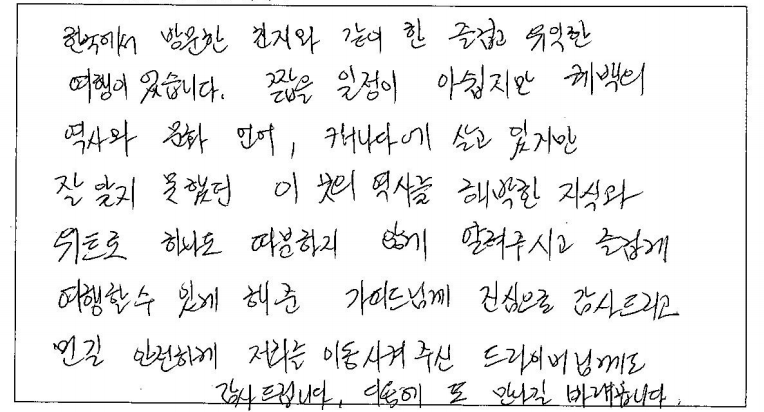 한국에서 방문한 친지와 같이 한 즐겁고 유익한
여행이 였습니다. 짧은 일정이 아쉽지만 퀘백의
역사와 문화 언어, 캐나다에 살고 있지만
잘 알지 못했던 이 곳의 역사를 해박한 지식과
위트로 하나도 따분하지 않게 알려주시고 즐겁게
여행할수 있게 해준 가이드님께 진심으로 감사드리고
먼길 안전하게 저희를 이동시켜 주신 드라이버님께도
감사드립니다, 다음에 또 만나길 바래봅니다.